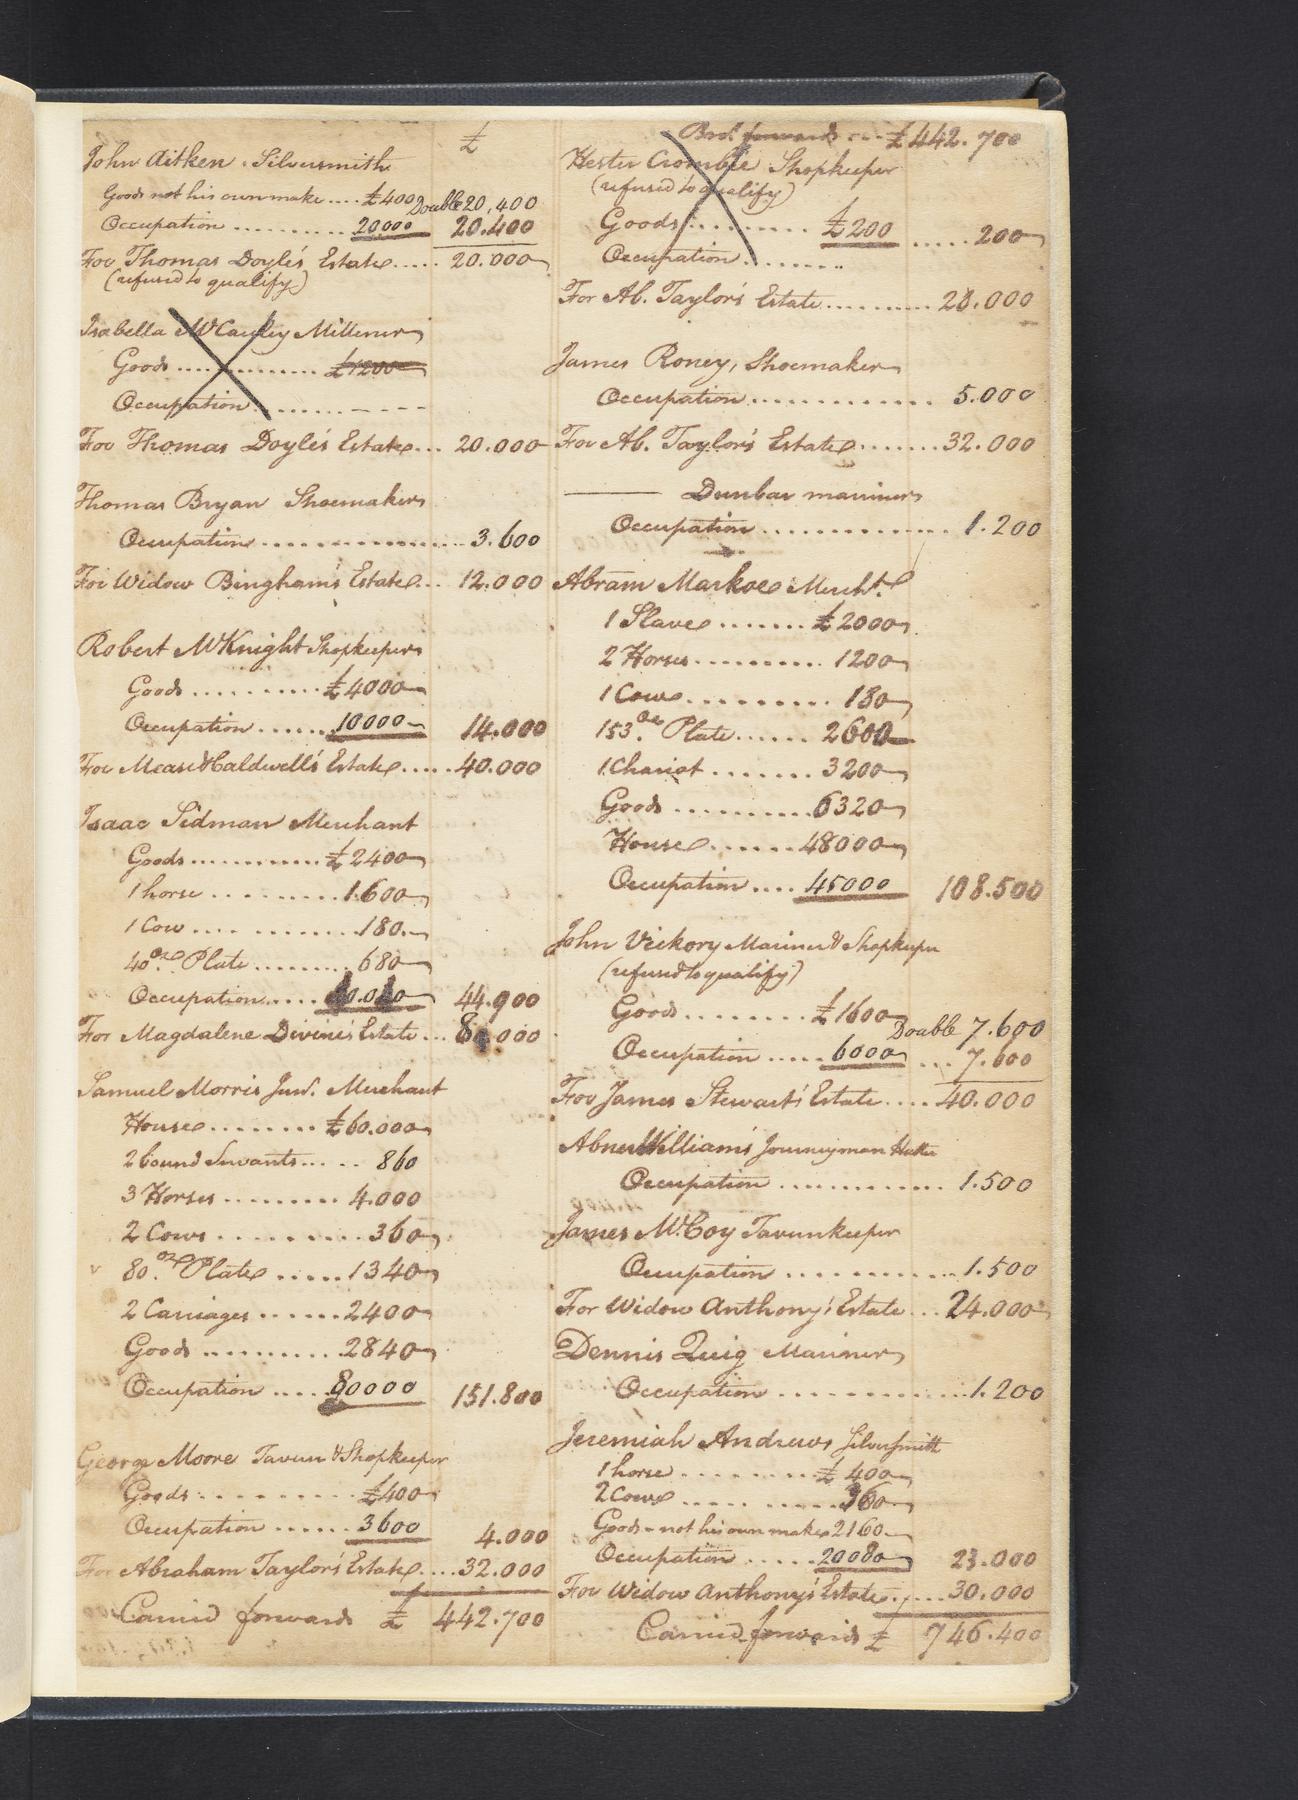 £
John Aitken, Silversmith
Goods not his own make .... £400 Double 20,400
Occupation .......... 20000 20.400
For Thomas Doyle's Estate..... 20.000
(refused to qualify)
Isabella McCauley Milliner
Goods ................ £1200
Occupation ..........
For Thomas Doyle's Estate... 20.000
Thomas Bryan Shoemaker
Occupation .................. 3.600
For Widow Bingham's Estate.. 12.000
Robert McKnight Shopkeeper
Goods .......... £4000
Occupation ...... 10000 14.000
For Mease & Caldwell's Estate..... 40.000
Isaac Sidman Merchant
Goods ........... £2400
1 horse .......... 1.600
1 Cow .... ........ 180.
40 oz. Plate ......... 680
Occupation..... 44.900
For Magdalene Divine's Estate ... 000
Samuel Morris Junr. Merchant
House ........ £60.000
2 bound Servants... .. 860
3 Horses ......... 4.000
2 Cows .......... 360
80. oz Plate ..... 1340
2 Carriages ...... 2400
Goods ......... 2840
Occupation .... 80000 151.800
George Moore Tavern & Shopkeeper
Goods .......... £400
Occupation ...... 3600 4.000
For Abraham Taylor's Estate.... 32.000
Carried forwards £ 442.700
Brot. forwards ... £442.700
Hester Crombie Shopkeeper
(refused to qualify)
Goods .......... £200 ..... 200
Occupation ........
For Ab. Taylor's Estate .......... 28.000
James Roney, Shoemaker
Occupation ............. 5.000
For Ab. Taylor's Estate ....... 32.000
——— Dunbar mariner
Occupation .............. 1.200
Abram Markoe Mercht.
1 Slave ....... £2000
2 Horses ......... 1200
1 Cow ......... 180
153. oz Plate ...... 2600
1 Chariot ....... 3200
Goods .......... 6320
House ...... 48000
Occupation .... 45000 108.500
John Vickory Mariner & Shopkeeper
(refused to qualify)
Goods ........ £1600 Double 7.600
Occupation ..... 6000 ... 7.600
For James Stewart's Estate .... 40.000
Abner Williams Journeyman Hatter
Occupation ............ 1.500
James McCoy Tavernkeeper
Occupation ............ 1.500
For Widow Anthony's Estate ... 24.000
Dennis Quig Mariner
Occupation .............. 1.200
Jeremiah Andrews Silversmith
1 horse .......... £ 400
2 Cows .. ......... 360
Goods - not his own make 2160
Occupation ..... 20080 23.000
For Widow Anthony's Estate ...... 30.000
Carried forwards £ 746.400